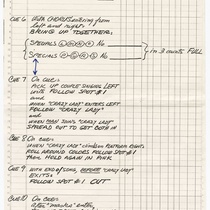 CUE 6 WITH CHORUS entering from
left and right:
BRING UP TOGETHER:
SPECIALS No
SPECIALS No
in 3 counts FULL
CUE 7 ON CUE:
PICK UP COUPLE SINGING LEFT
WITH FOLLOW SPOT #1
and
WHEN "CRAZY LADY" ENTERS LEFT
FOLLOW "CRAZY LADY"
and
WHEN MAN JOINS "CRAZY LADY"
SPREAD OUT TO GET BOTH IN
CUE 8 ON CUE:
(WHEN "CRAZY LADY" climbs on PLATFORM RIGHT)
ROLL AROUND COLORS FOLLOW SPOT #1
then HOLD AGAIN IN PINK
CUE 9 WITH END of SONG, BEFORE "CRAZY LADY"
EXITS:
FOLLOW SPOT #1 OUT
CUE 10 ON CUE: